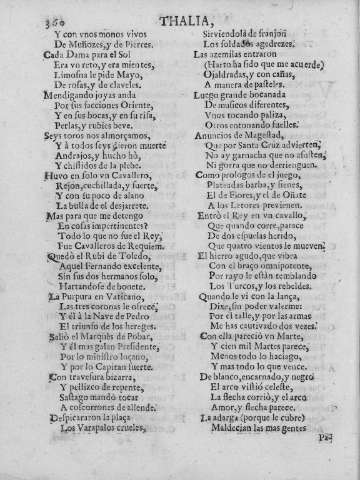 360
THALIA,
Y con vnos monos vivos
De Muñozes, y de Pierres.
Cada Dama para el Sol
Era vn reto, y era mientes,
Limosna le pide Mayo,
De rosas, y de claveles.
Mendigando joyas anda
Por sus facciones Oriente,
Y en sus bocas, y en su risa,
Perlas, y rubies beve.
Seys toros nos almorçamos,
Y à todos seys dieron muerte
Andrajos, y hucho hò,
Y chistidos de la plebe.
Huvo en solo vn Cavallero,
Rejon, cuchillada, y suerte,
Y con su poco de alano
La bulla de el desjarrete.
Mas para que me detengo
En cosas impertinentes?
Todo lo que no fue el Rey,
Fue Cavalleros de Requiem.
Quedò el Rubi de Toledo,
Aquel Fernando excelente,
Sin sus dos hermanos solo,
Hartandose de bonete.
La Purpura en Vaticano,
Las tres coronas le ofrece,
Y èl à la Nave de Pedro
El triunfo de los hereges.
Saliò el Marquès de Pobar,
Y èl mas galan Presidente,
Por lo ministro loçano,
Y por lo Capitan fuerte.
Con travesura bizarra,
Y pellizco de repente,
Sastago mandò tocar
A coscorrones de allende.
Despicararon la plaça
Los Varapalos crueles,
Sirviendola de franjon
Los soldados agedrezes.
Las azemilas entraron
(Harto ha sido que me acuerde)
Ojaldradas, y con cañas,
A manera de pasteles.
Luego grande bocanada
De musicos diferentes,
Vnos tocando paliza,
Otros rotonando fuelles.
Anuncios de Magestad,
Que por Santa Cruz advierten,
No ay garnacha que no assusten,
Ni gorra que no derrienguen.
Como prologos de el juego,
Plateadas barba, y sienes,
El de Flores, y el de Oñate
A los Letores previenen.
Entrò el Rey en vn cavallo,
Que quando corre, parece
De dos espuelas herido,
Que quatro vientos le mueven.
El hierro agudo, que vibra
Con el braço omnipotente,
Por rayo le estàn temblando
Los Turcos, y los rebeldes.
Quando le vi con la lança,
Dixe, sin poder valerme:
Por el talle, y por las armas
Me has cautivado dos vezes.
Con ella pareciò vn Marte,
Y cien mil Martes parece,
Menos todo lo haciago,
Y mas todo lo que vence.
De blanco, encarnado, y negro
El arco vistiò celeste,
La flecha corriò, y el arco
Amor, y flecha parece.
La adarga (porque le cubre)
Maldecian las mas gentes